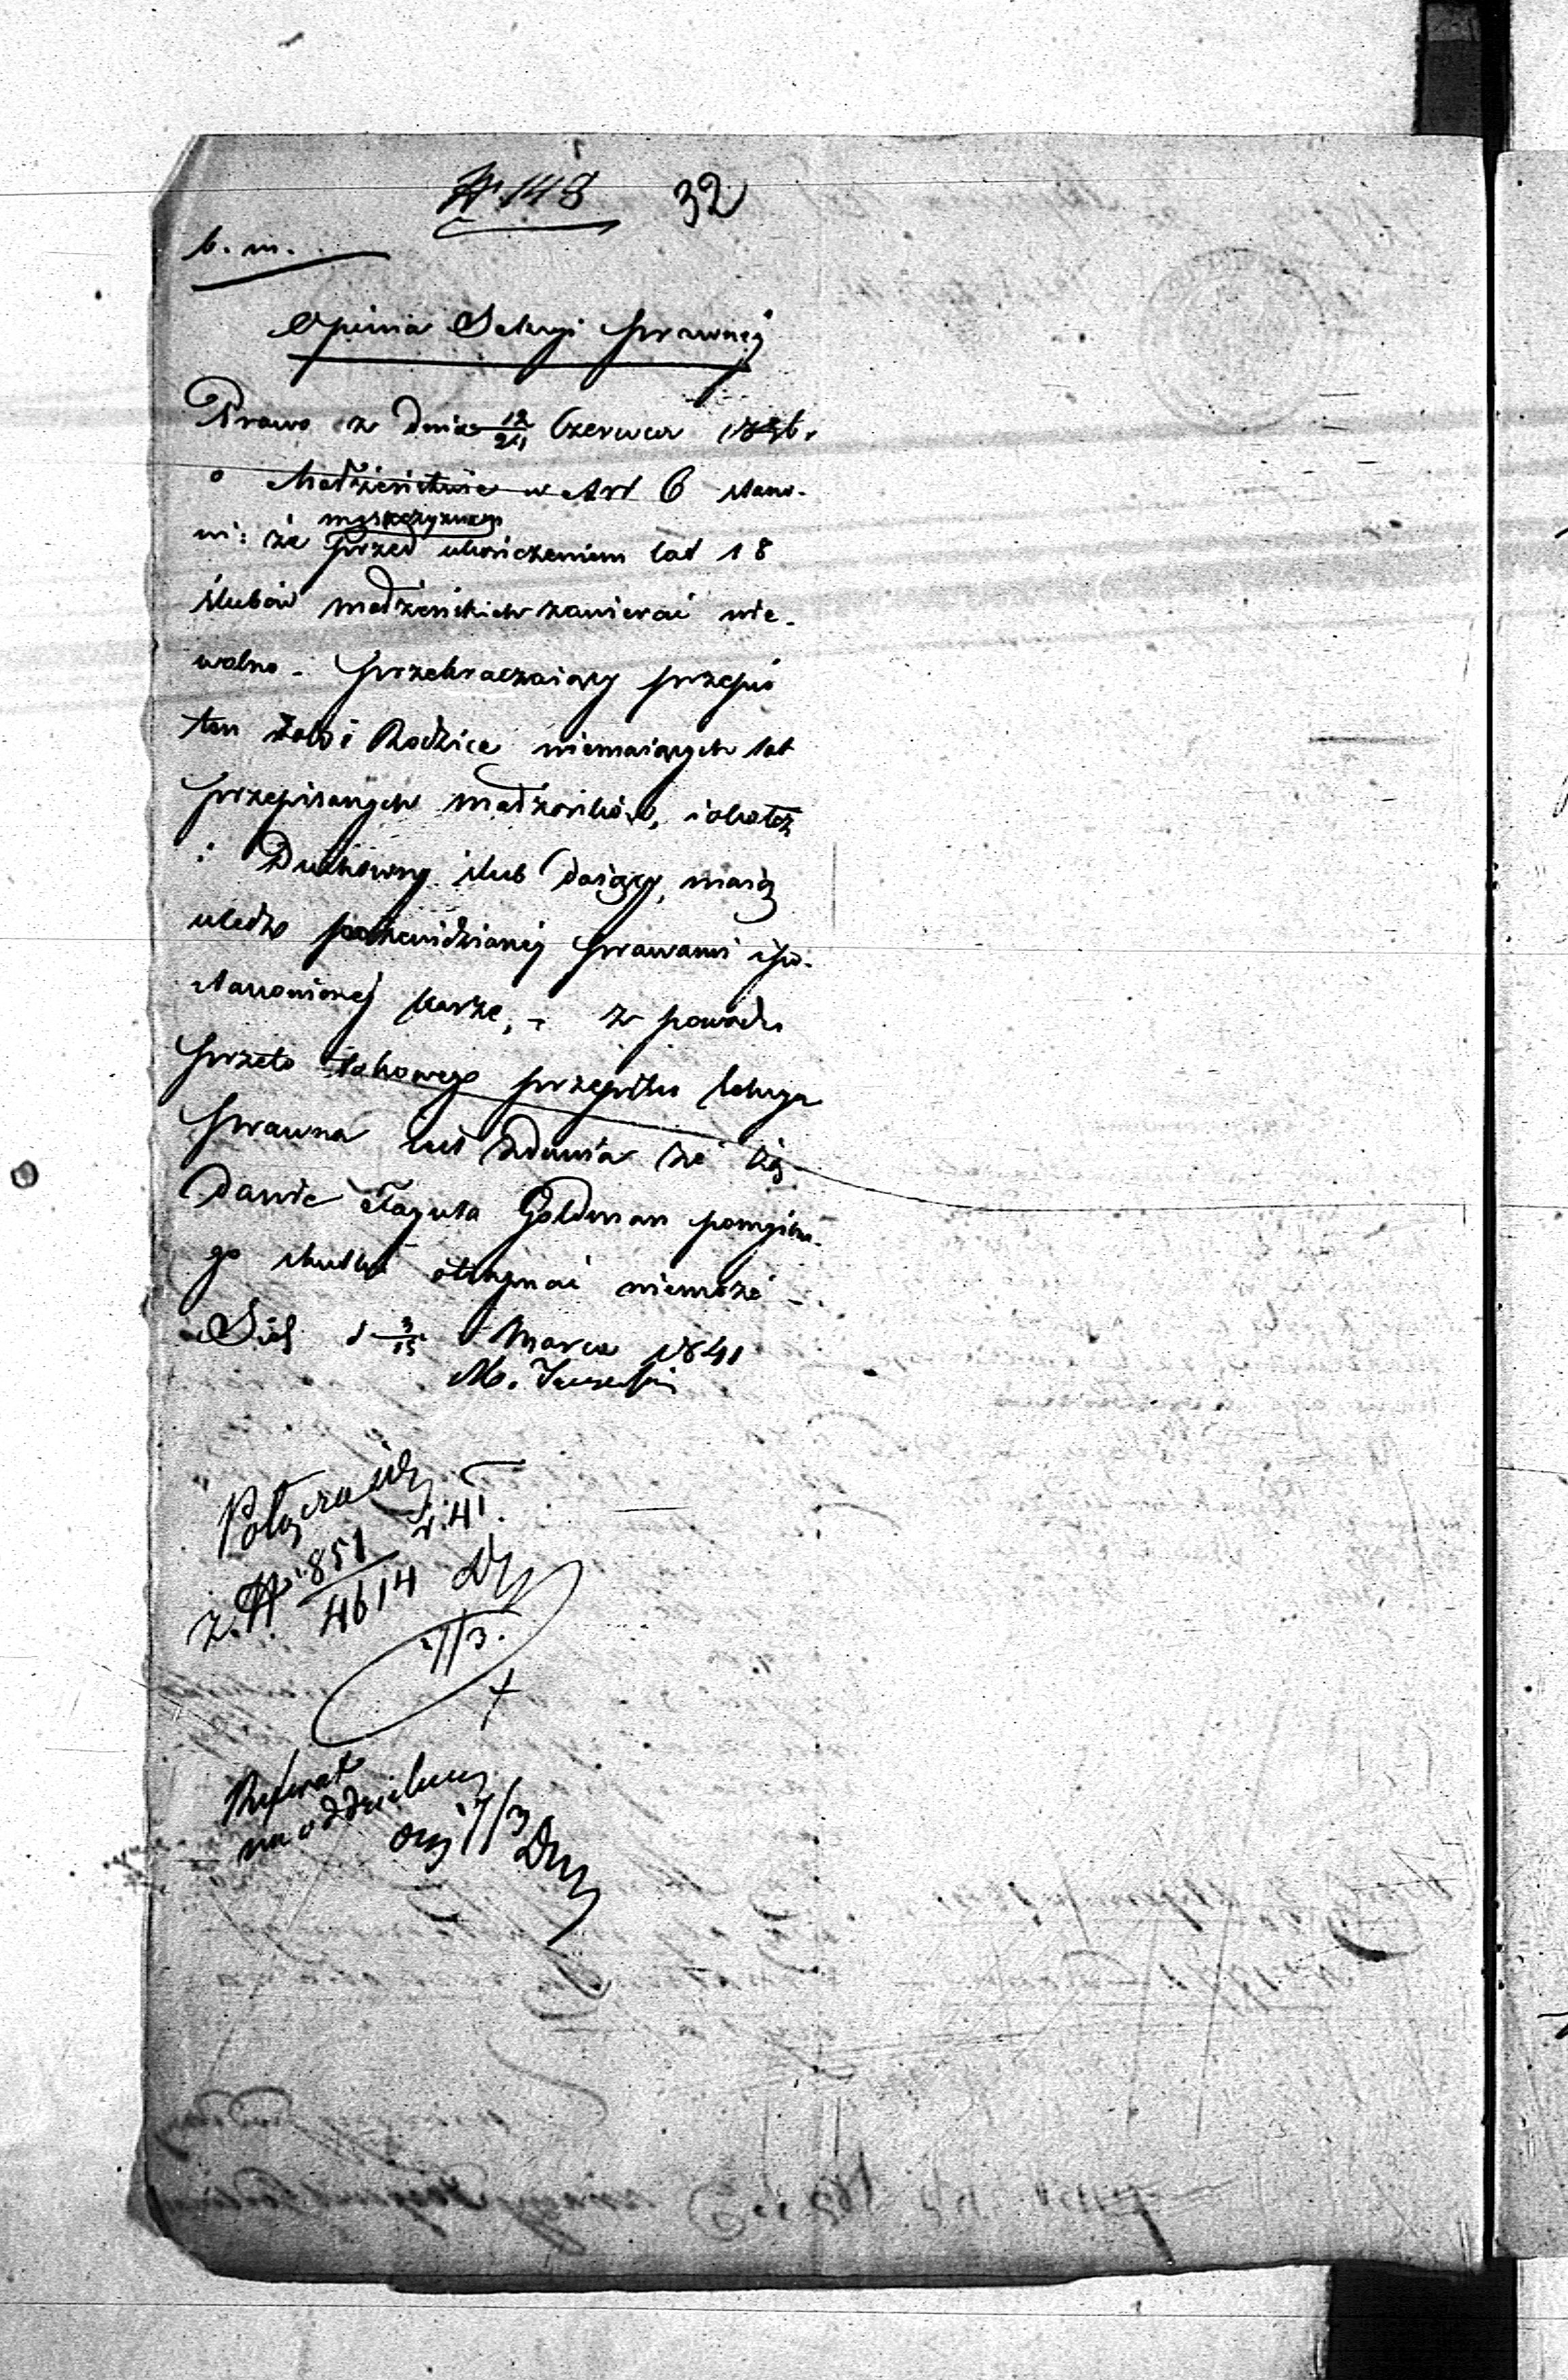 N. 148 32
b. m.
Opinia Sekcyi prawnéj
Prawo z dnia 12/24 Czerwca 1836 r.
o Małżeństwie w Art 6 stano-
wi: że mężczyznom przed ukończeniem lat 18
ślubów małżeńskich zawierać nie-
wolno. Przekraczaiący przepis
ten iako i Rodzice niemaiących lat
przepisanych małżonków, iakoteż
i Duchowny ślub daiący, maią
uledz przewidzianéj prawami i po-
stanowionéj karze, - z powodu
przeto takowego przepisu Sekcya
prawna iest zdania że żą-
danie Goldman pomyślne-
go skutku otrzymać niemoże -
d 3/15 Marca 1841
M.
Połączony
z N. 851/4614 r. 41.
17/3.
Referat
na oddzielny
17/3